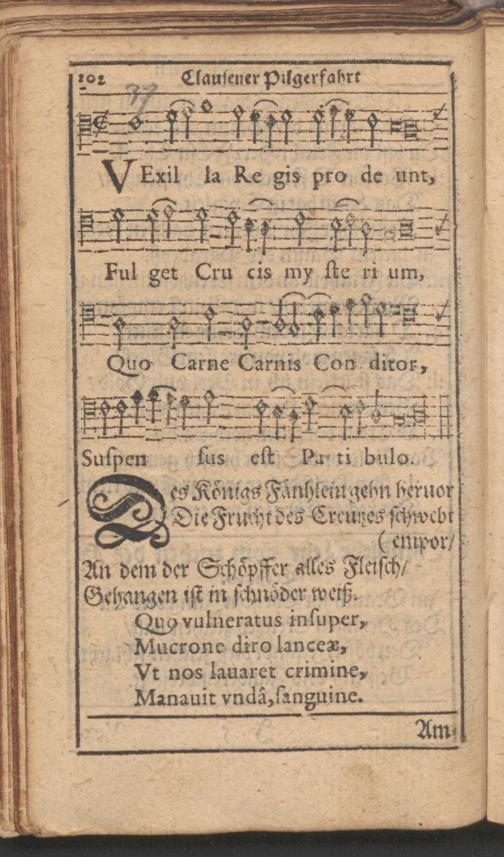 102 Clausener Pilgerfahrt
37
VExil la Re gis pro de unt,
Ful get Cru cis my ste ri um,
Quo Carne Carnis Con ditor,
Suspen sus est Pa ti bulo.
Des Königs Fänhlein gehn hervor
Die Frucht des Creutzes schwebt
(empor/
An dem der Schöpffer alles Fleisch/
Gehangen ist in schnöder weiß.
Quo vulneratus insuper,
Mucrone diro lanceæ,
Vt nos lavaret crimine,
Manavit vndâ, sanguine.
Am